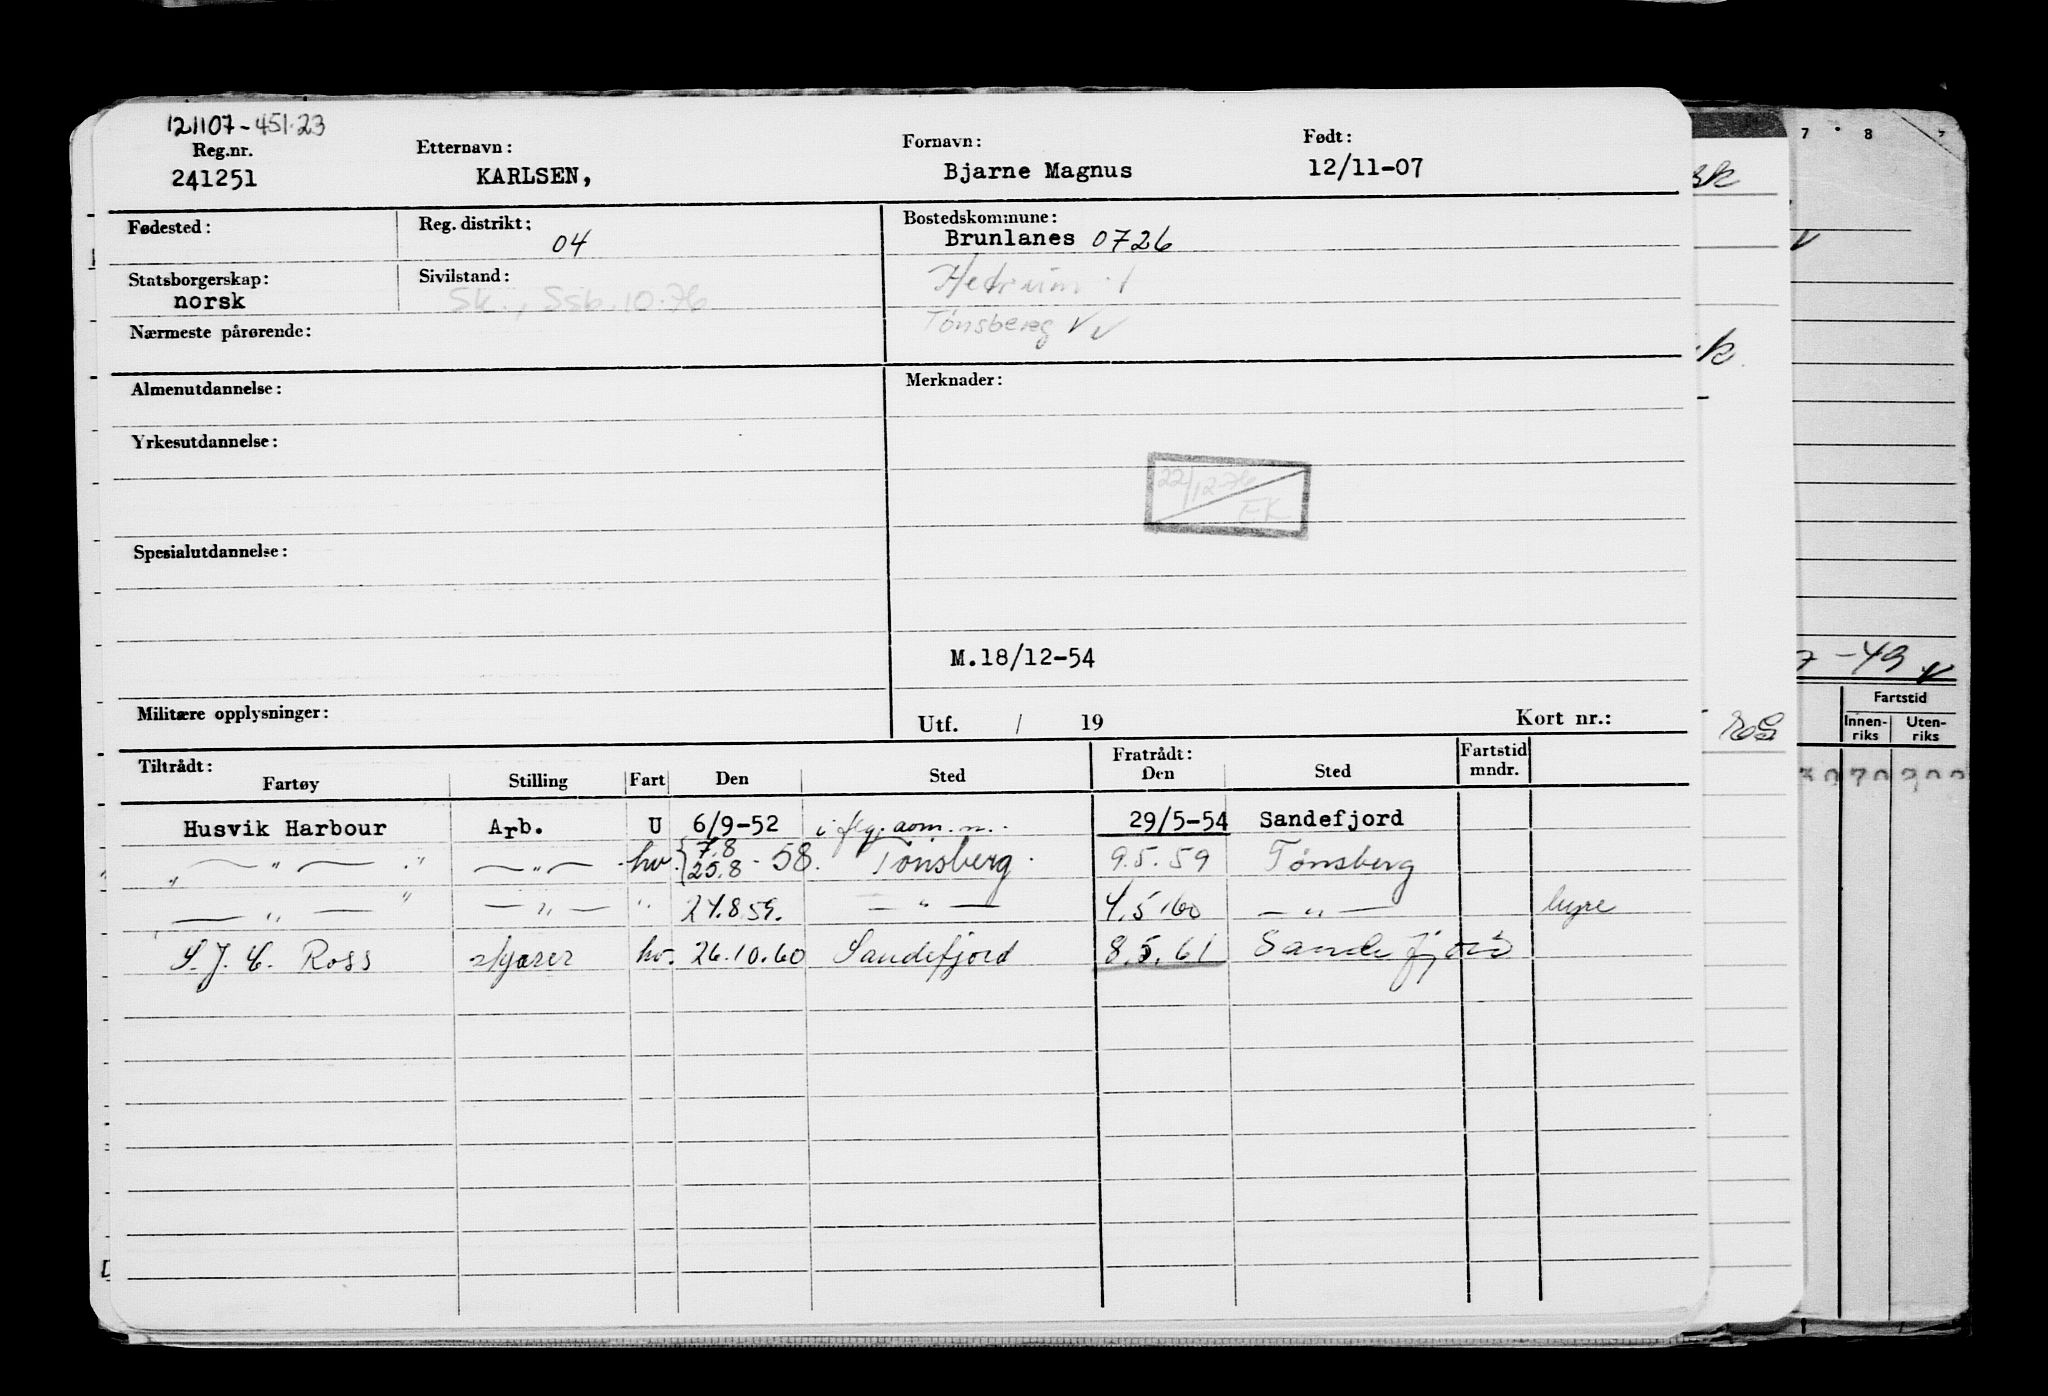 121107-451.23
Reg.nr. Etternavn: Fornavn: Født:
241251 KARLSEN, Bjarne Magnus 12/11-07
Fødested: Reg. distrikt: 04 Bostedskommune:
Brunlanes 0726
Statsborgerskap: norsk Sivilstand: Hedrum
Sk., Ssb.10.76
Tønsberg
Nærmeste pårørende:
Almenutdannelse: Merknader:
Yrkesutdannelse:
22/12-76
EK
Spesialutdannelse:
M.18/12-54
Militære opplysninger: Utf. / 19 Kort nr.:
Tiltrådt: Fratrådt: Fartstid mndr.
Fartøy Stilling Fart Den Sted Den Sted
Husvik Harbour Arb. U 6/9-52 29/5-54 Sandefjord
" " " hv. {7.8 25.8 -58. Tønsberg. 9.5.59 Tønsberg
" " " " " 4.5.60 " hyre
S.J.C. Ross hv. 26.10.60 Sandefjord 8.5.61 Sandefjord
7 8
-49
Fartstid
Innen-riks Uten-riks